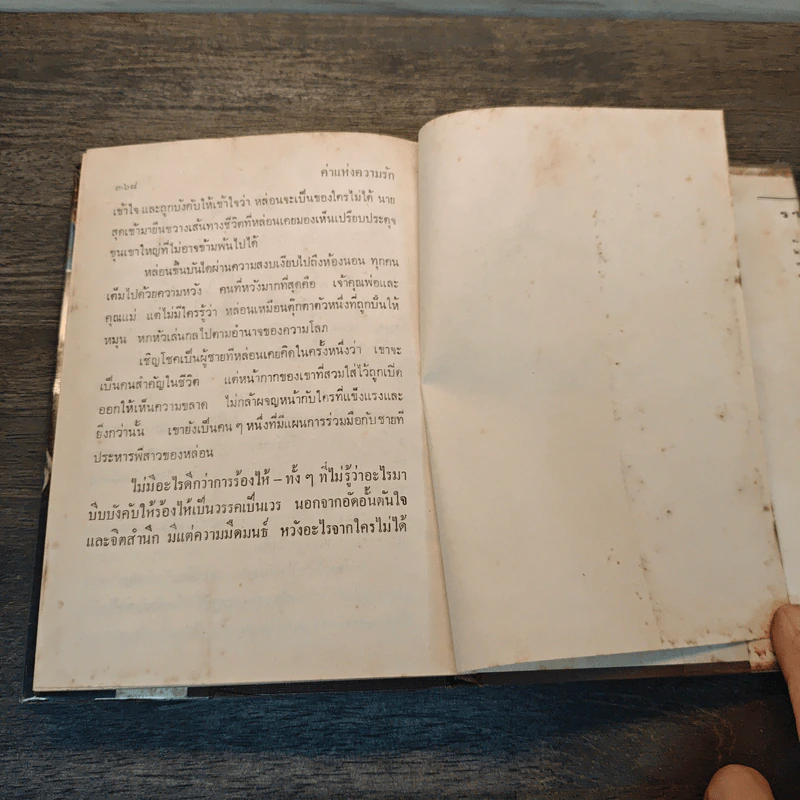 ๓๖๘
ค่าแห่งความรัก
เข้าใจ และถูกบังคับให้เข้าใจว่า หล่อนจะเป็นของใครไม่ได้ นาย
สุดเข้ามายืนขวางเส้นทางชีวิตที่หล่อนเคยมองเห็นเปรียบประดุจ
ขุนเขาใหญ่ที่ไม่อาจข้ามพ้นไปได้
หล่อนขึ้นบันไดผ่านความสงบเงียบไปถึงห้องนอน ทุกคน
เต็มไปด้วยความหวัง คนที่หวังมากที่สุดคือ เจ้าคุณพ่อและ
คุณแม่ แต่ไม่มีใครรู้ว่า หล่อนเหมือนตุ๊กตาตัวหนึ่งที่ถูกปั้นให้
หมุน หกหัวเล่นกลไปตามอำนาจของความโลภ
เชิญโชคเป็นผู้ชายที่หล่อนเคยคิดในครั้งหนึ่งว่า เขาจะ
เป็นคนสำคัญในชีวิต แต่หน้ากากของเขาที่สวมใส่ไว้ถูกเปิด
ออกให้เห็นความขลาด ไม่กล้าผจญหน้ากับใครที่แข็งแรงและ
ยิ่งกว่านั้น เขายังเป็นคน ๆ หนึ่งที่มีแผนการร่วมมือกับชายที่
ประหารพี่สาวของหล่อน
ไม่มีอะไรดีกว่าการร้องไห้ – ทั้ง ๆ ที่ไม่รู้ว่าอะไรมา
บีบบังคับให้ร้องไห้เป็นวรรคเป็นเวร นอกจากอัดอั้นตันใจ
และจิตสำนึก มีแต่ความมืดมนธ์ หวังอะไรจากใครไม่ได้